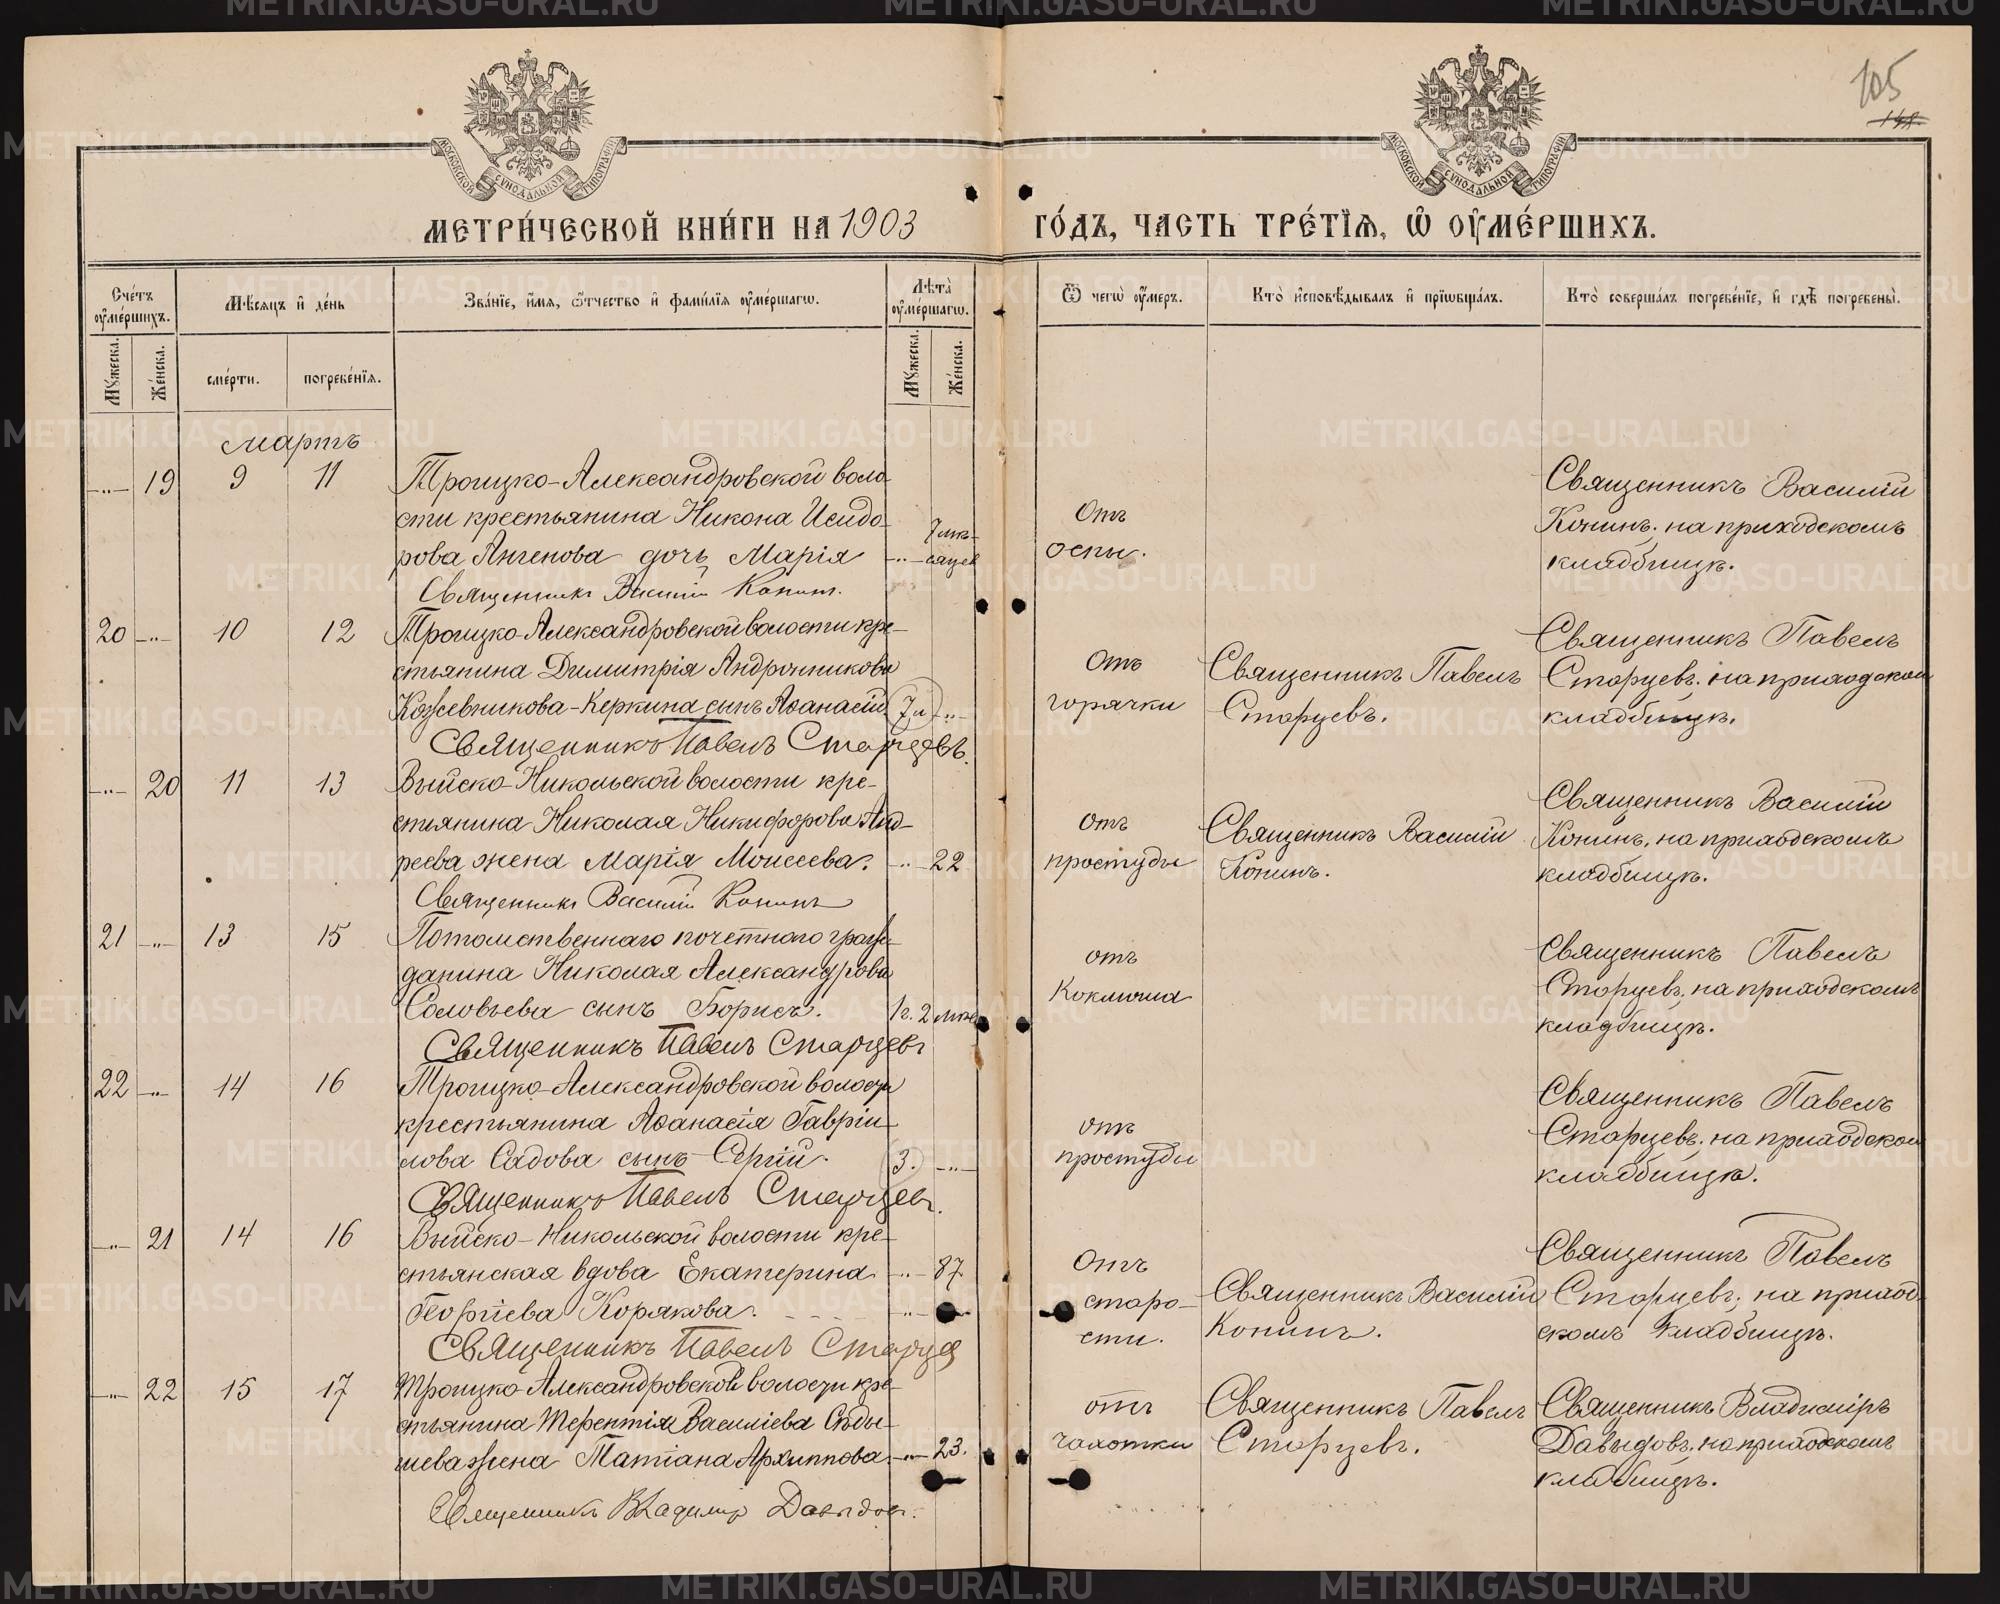 105
МОСКОВСКОЙ СѴНОДАЛЬНОЙ ТИПОГРАФІИ
МОСКОВСКОЙ СѴНОДАЛЬНОЙ ТИПОГРАФІИ
МЕТРИ́ЧЕСКОЙ КНИ́ГИ НА 1903 ГО́ДЪ, ЧАСТЬ ТРЕ́ТІѦ, Ѡ҆ ОУ҆МЕ́РШИХЪ.
Сче́тъ оу҆ме́ршихъ.
Мѣ́сяцъ и҆ де́нь
Зва́нїе, и҆́мя, ѻ҆́тчество и҆ фами́лїя оу҆ме́ршагѡ.
Лѣ́та оу҆ме́ршагѡ.
Ѿ чегѡ̀ оу҆́меръ.
Кто̀ и҆сповѣ́дывалъ и҆ прїѡбща́лъ.
Кто̀ соверша́лъ погребе́нїе, и҆ гдѣ̀ погребены̀.
Мꙋ́жеска.
Же́нска.
сме́рти.
погребе́нїѧ.
Мꙋ́жеска.
Же́нска.
Мартъ
-"- 19 9 11 Троицко-Александровской воло-
сти крестьянина Никона Исидо-
рова Ангенова дочь Марія -"- 7 мѣ-
сяцев
Священникъ Василій Конинъ.
Отъ
оспы.
Священникъ Василій
Конинъ; на приходскомъ
кладбищѣ.
20 -"- 10 12 Троицко-Александровской волости кре-
стьянина Димитрія Андронникова
Кожевникова-Керкина сынъ Аѳанасій 7 н -"-
Священникъ Павелъ Старцевъ.
Отъ
горячки
Священникъ Павелъ
Старцевъ.
Священникъ Павелъ
Старцевъ; на приходском
кладбищѣ.
-"- 20 11 13 Выйско-Никольской волости кре-
стьянина Николая Никифорова Анд-
реева жена Марія Моисеева. -"- 22
Священникъ Василій Конинъ
отъ
простуды
Священникъ Василій
Конинъ.
Священникъ Василій
Конинъ, на приходскомъ
кладбищѣ.
21 -"- 13 15 Потомственнаго почетнаго граж-
данина Николая Александрова
Соловьева сынъ Борисъ. 1 г. 2 мѣс
Священникъ Павелъ Старцевъ
отъ
Коклюша
Священникъ Павелъ
Старцевъ, на приходскомъ
кладбищѣ.
22 -"- 14 16 Троицко-Александровской волости
крестьянина Аѳанасія Гаврiи-
лова Садова сынъ Сергій. 3. -"-
Священникъ Павелъ Старцевъ.
отъ
простуды
Священникъ Павелъ
Старцевъ; на приходском
кладбищѣ.
-"- 21 14 16 Выйско-Никольской волости кре-
стьянская вдова Екатерина -"- 87.
Георгіева Корякова. -"-
Священникъ Павелъ Старцев
Отъ
старо-
сти.
Священникъ Василій
Конинъ.
Священникъ Павелъ
Старцевъ; на приход-
скомъ кладбищѣ.
-"- 22 15 17 Троицко-Александровской волости кре-
стьянина Терентія Василіева Сѣды-
шева жена Татіана Архиппова -"- 23.
Священникъ Владиміръ Давыдовъ.
отъ
чахотки
Священникъ Павелъ
Старцевъ.
Священникъ Владиміръ
Давыдовъ, на приходскомъ
кладбищѣ.
METRIKI.GASO-URAL.RU